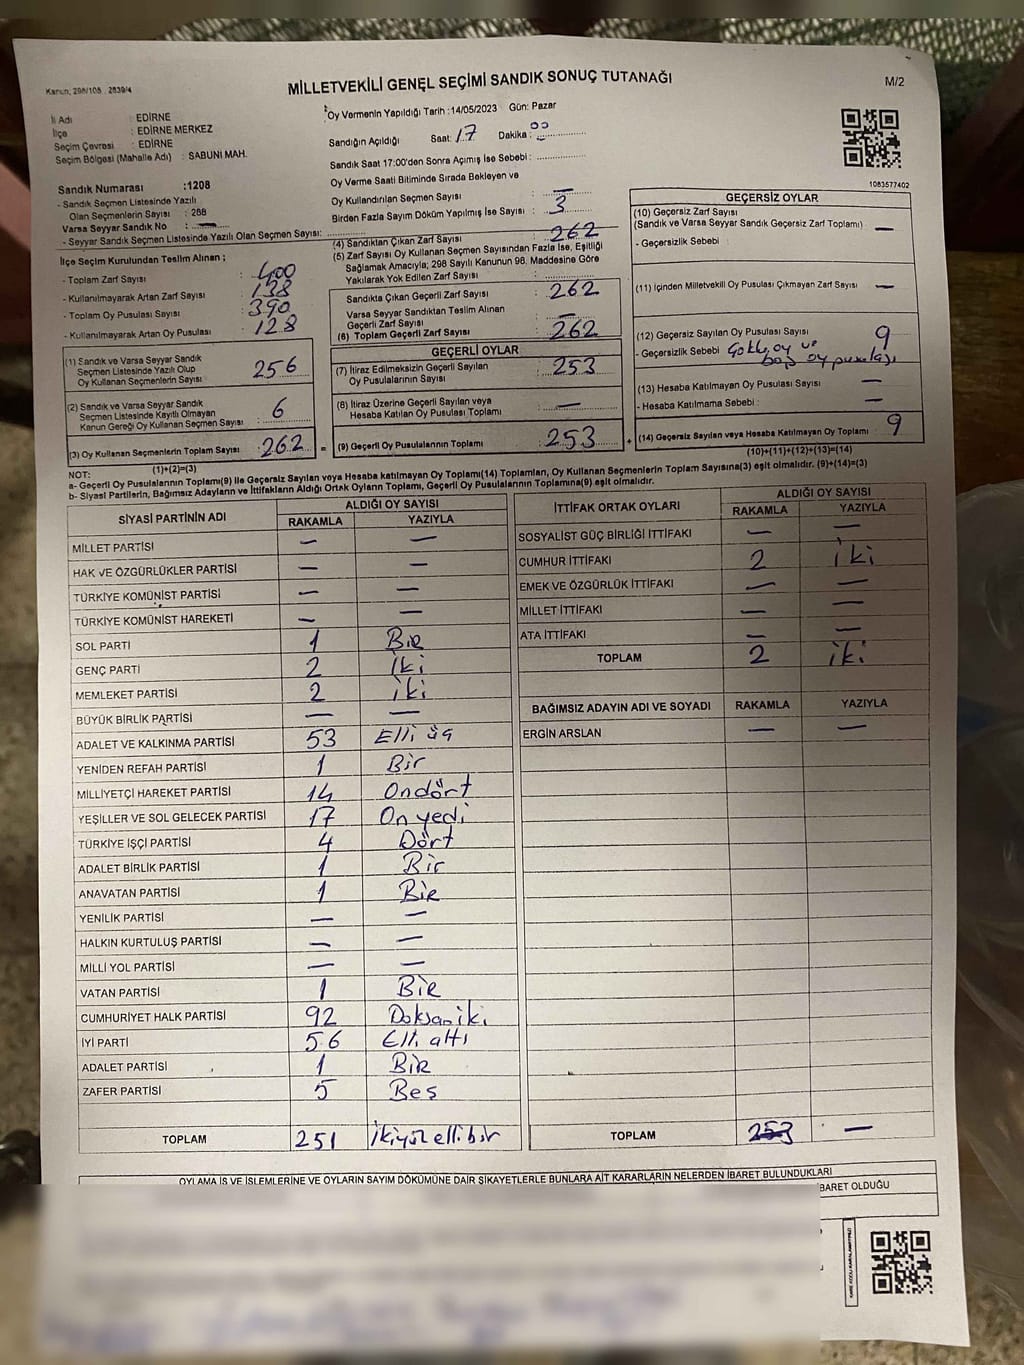 Kanun; 298/105 . 2839/4
MİLLETVEKİLİ GENEL SEÇİMİ SANDIK SONUÇ TUTANAĞI
M/2
İl Adı : EDİRNE
İlçe : EDİRNE MERKEZ
Seçim Çevresi : EDİRNE
Seçim Bölgesi (Mahalle Adı) : SABUNİ MAH.
Oy Vermenin Yapıldığı Tarih :14/05/2023 Gün: Pazar
Sandığın Açıldığı Saat: 17 Dakika: 00
Sandık Saat 17:00'den Sonra Açımış İse Sebebi :
Oy Verme Saati Bitiminde Sırada Bekleyen ve
Oy Kullandırılan Seçmen Sayısı —
Birden Fazla Sayım Döküm Yapılmış İse Sayısı : 3
1083577402
Sandık Numarası :1208
- Sandık Seçmen Listesinde Yazılı
Olan Seçmenlerin Sayısı : 288
Varsa Seyyar Sandık No : —
- Seyyar Sandık Seçmen Listesinde Yazılı Olan Seçmen Sayısı:
İlçe Seçim Kurulundan Teslim Alınan ;
- Toplam Zarf Sayısı : 400
- Kullanılmayarak Artan Zarf Sayısı : 138
- Toplam Oy Pusulası Sayısı : 390
- Kullanılmayarak Artan Oy Pusulası : 128
(1) Sandık ve Varsa Seyyar Sandık
Seçmen Listesinde Yazılı Olup
Oy Kullanan Seçmenlerin Sayısı : 256
(2) Sandık ve Varsa Seyyar Sandık
Seçmen Listesinde Kayıtlı Olmayan
Kanun Gereği Oy Kullanan Seçmen Sayısı : 6
(3) Oy Kullanan Seçmenlerin Toplam Sayısı : 262
(1)+(2)=(3)
(4) Sandıktan Çıkan Zarf Sayısı : 262
(5) Zarf Sayısı Oy Kullanan Seçmen Sayısından Fazla İse, Eşitliği
Sağlamak Amacıyla; 298 Sayılı Kanunun 98. Maddesine Göre
Yakılarak Yok Edilen Zarf Sayısı :
Sandıkta Çıkan Geçerli Zarf Sayısı : 262
Varsa Seyyar Sandıktan Teslim Alınan
Geçerli Zarf Sayısı : —
(6) Toplam Geçerli Zarf Sayısı : 262
GEÇERLİ OYLAR
(7) İtiraz Edilmeksizin Geçerli Sayılan
Oy Pusulalarının Sayısı : 253
(8) İtiraz Üzerine Geçerli Sayılan veya
Hesaba Katılan Oy Pusulası Toplamı : —
= (9) Geçerli Oy Pusulalarının Toplamı : 253
GEÇERSİZ OYLAR
(10) Geçersiz Zarf Sayısı
(Sandık ve Varsa Seyyar Sandık Geçersiz Zarf Toplamı) —
- Geçersizlik Sebebi :
(11) İçinden Milletvekili Oy Pusulası Çıkmayan Zarf Sayısı —
(12) Geçersiz Sayılan Oy Pusulası Sayısı 9
- Geçersizlik Sebebi Çoklu oy ve
boş oy pusulası
(13) Hesaba Katılmayan Oy Pusulası Sayısı —
- Hesaba Katılmama Sebebi : —
+ (14) Geçersiz Sayılan veya Hesaba Katılmayan Oy Toplamı 9
(10)+(11)+(12)+(13)=(14)
NOT:
a- Geçerli Oy Pusulalarının Toplamı(9) ile Geçersiz Sayılan veya Hesaba katılmayan Oy Toplamı(14) Toplamları, Oy Kullanan Seçmenlerin Toplam Sayısına(3) eşit olmalıdır. (9)+(14)=(3)
b- Siyasi Partilerin, Bağımsız Adayların ve İttifakların Aldığı Ortak Oyların Toplamı, Geçerli Oy Pusulalarının Toplamına(9) eşit olmalıdır.
SİYASİ PARTİNİN ADI
ALDIĞI OY SAYISI
RAKAMLA YAZIYLA
MİLLET PARTİSİ — —
HAK VE ÖZGÜRLÜKLER PARTİSİ — —
TÜRKİYE KOMÜNİST PARTİSİ — —
TÜRKİYE KOMÜNİST HAREKETİ — —
SOL PARTİ 1 Bir
GENÇ PARTİ 2 İki
MEMLEKET PARTİSİ 2 iki
BÜYÜK BİRLİK PARTİSİ — —
ADALET VE KALKINMA PARTİSİ 53 Elli üç
YENİDEN REFAH PARTİSİ 1 Bir
MİLLİYETÇİ HAREKET PARTİSİ 14 Ondört
YEŞİLLER VE SOL GELECEK PARTİSİ 17 On yedi
TÜRKİYE İŞÇİ PARTİSİ 4 Dört
ADALET BİRLİK PARTİSİ 1 Bir
ANAVATAN PARTİSİ 1 Bir
YENİLİK PARTİSİ — —
HALKIN KURTULUŞ PARTİSİ — —
MİLLİ YOL PARTİSİ — —
VATAN PARTİSİ 1 Bir
CUMHURİYET HALK PARTİSİ 92 Doksan iki
İYİ PARTİ 56 Elli altı
ADALET PARTİSİ 1 Bir
ZAFER PARTİSİ 5 Beş
TOPLAM 251 İkiyüz elli bir
İTTİFAK ORTAK OYLARI
ALDIĞI OY SAYISI
RAKAMLA YAZIYLA
SOSYALİST GÜÇ BİRLİĞİ İTTİFAKI — —
CUMHUR İTTİFAKI 2 iki
EMEK VE ÖZGÜRLÜK İTTİFAKI — —
MİLLET İTTİFAKI — —
ATA İTTİFAKI — —
TOPLAM 2 iki
BAĞIMSIZ ADAYIN ADI VE SOYADI RAKAMLA YAZIYLA
ERGİN ARSLAN — —
TOPLAM 253 —
OYLAMA İŞ VE İŞLEMLERİNE VE OYLARIN SAYIM DÖKÜMÜNE DAİR ŞİKAYETLERLE BUNLARA AİT KARARLARIN NELERDEN İBARET BULUNDUKLARI
BARET OLDUĞU